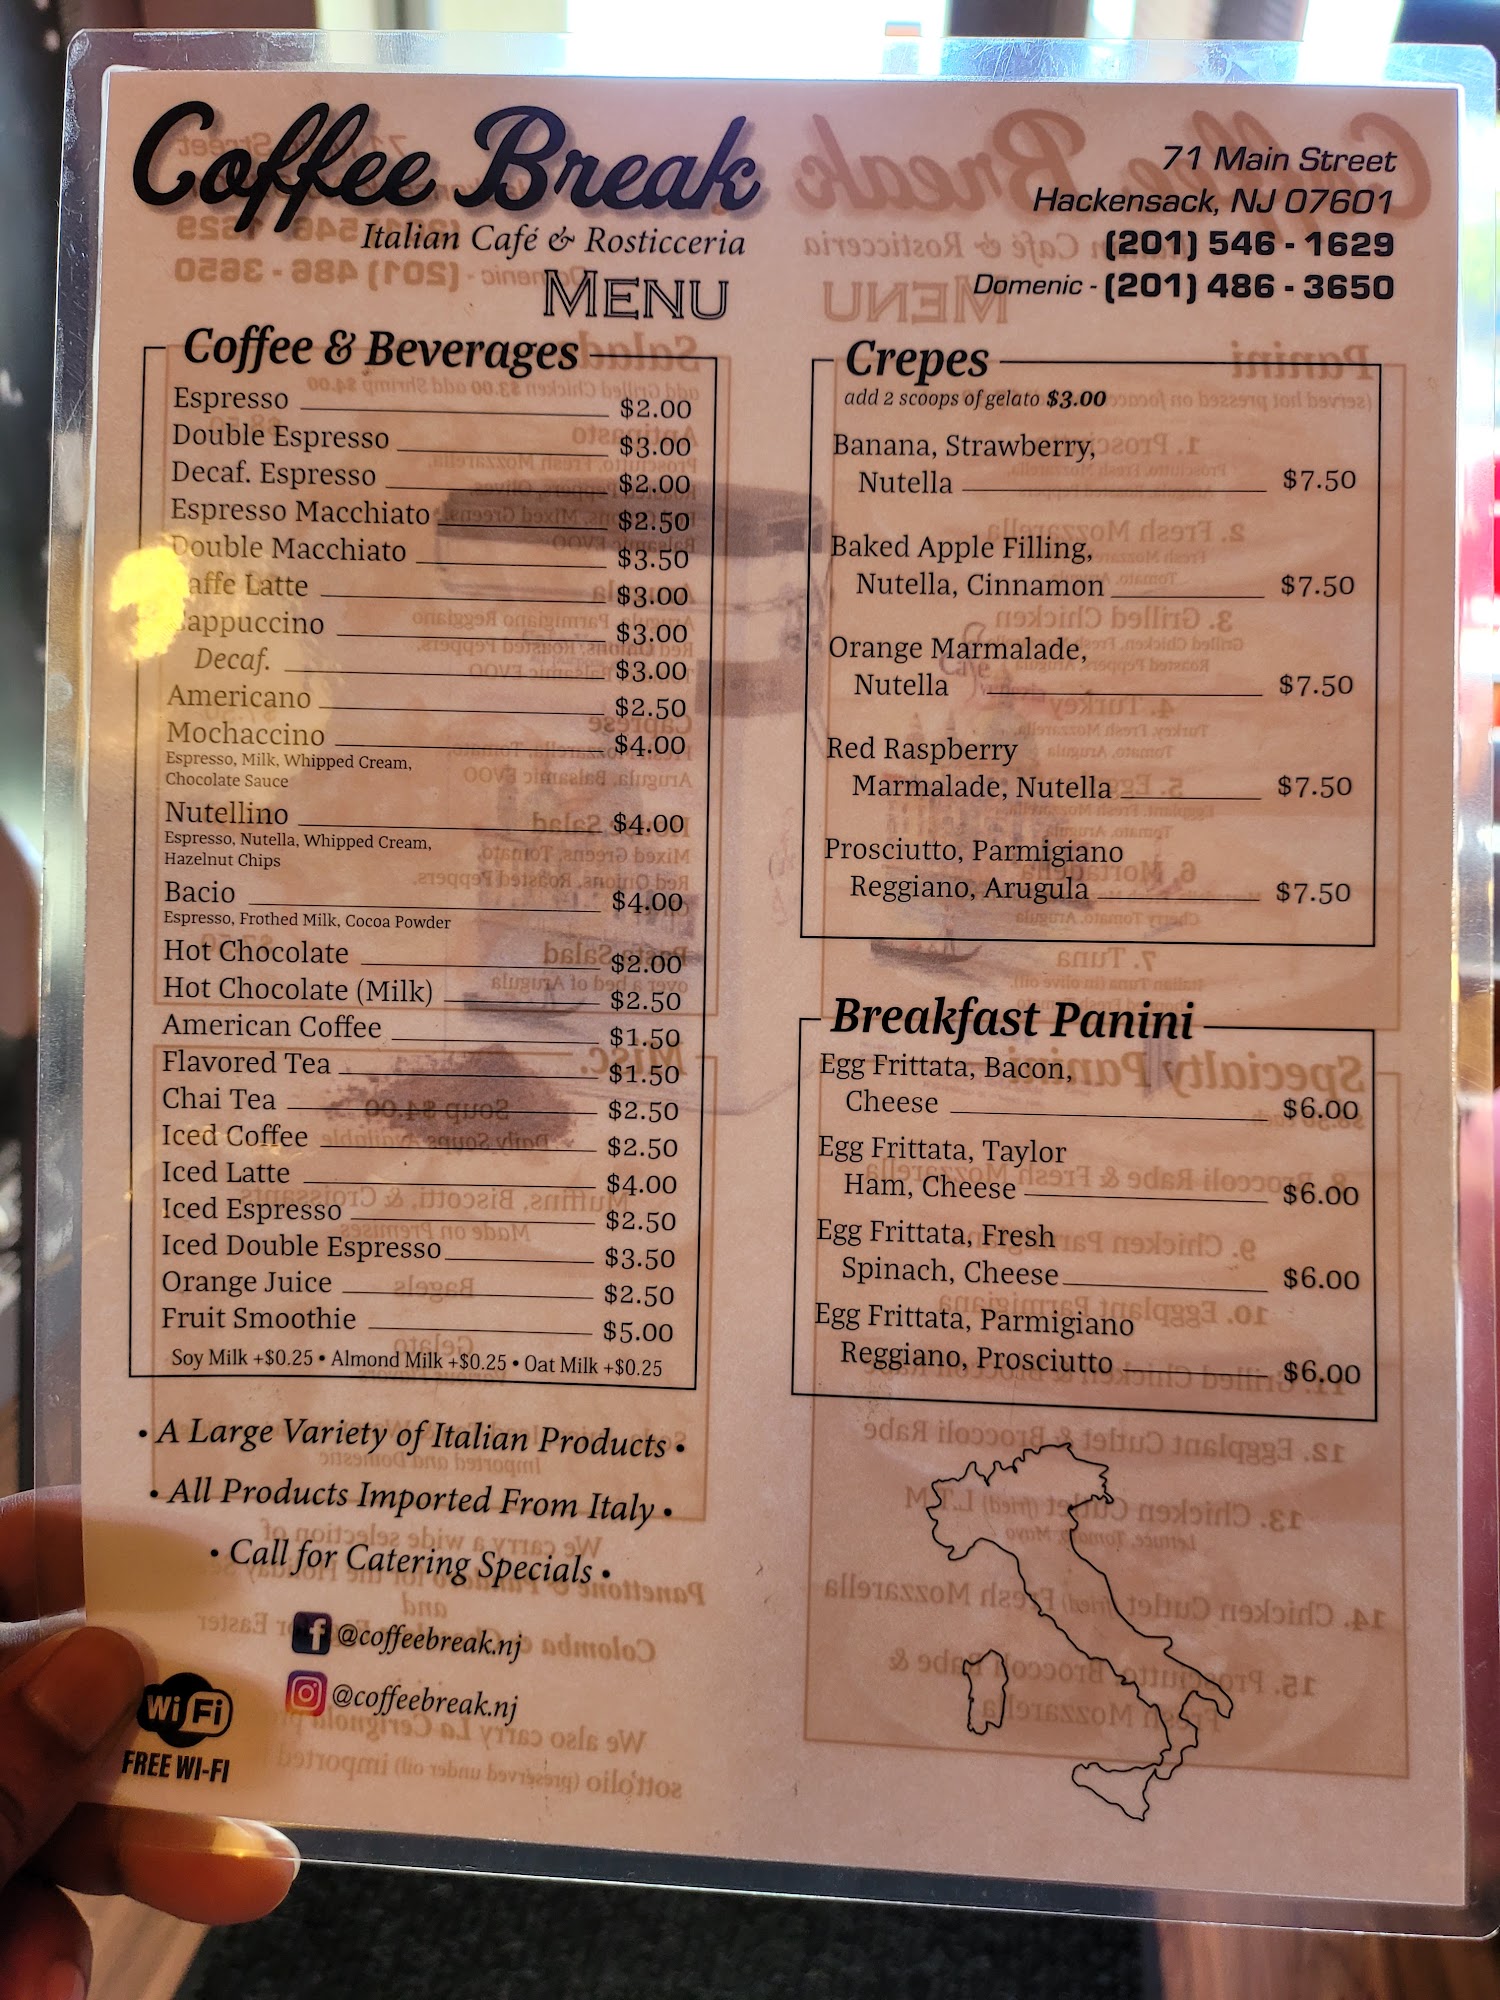 Coffee Break
Italian Café & Rosticceria
MENU
71 Main Street
Hackensack, NJ 07601
(201) 546 - 1629
Domenic - (201) 486 - 3650
Coffee & Beverages
Espresso $2.00
Double Espresso $3.00
Decaf. Espresso $2.00
Espresso Macchiato $2.50
Double Macchiato $3.50
Caffe Latte $3.00
Cappuccino $3.00
Decaf. $3.00
Americano $2.50
Mochaccino $4.00
Espresso, Milk, Whipped Cream,
Chocolate Sauce
Nutellino $4.00
Espresso, Nutella, Whipped Cream,
Hazelnut Chips
Bacio $4.00
Espresso, Frothed Milk, Cocoa Powder
Hot Chocolate $2.00
Hot Chocolate (Milk) $2.50
American Coffee $1.50
Flavored Tea $1.50
Chai Tea $2.50
Iced Coffee $2.50
Iced Latte $4.00
Iced Espresso $2.50
Iced Double Espresso $3.50
Orange Juice $2.50
Fruit Smoothie $5.00
Soy Milk +$0.25 • Almond Milk +$0.25 • Oat Milk +$0.25
• A Large Variety of Italian Products •
• All Products Imported From Italy •
• Call for Catering Specials •
@coffeebreak.nj
@coffeebreak.nj
Wi Fi
FREE WI-FI
Crepes
add 2 scoops of gelato $3.00
Banana, Strawberry,
Nutella $7.50
Baked Apple Filling,
Nutella, Cinnamon $7.50
Orange Marmalade,
Nutella $7.50
Red Raspberry
Marmalade, Nutella $7.50
Prosciutto, Parmigiano
Reggiano, Arugula $7.50
Breakfast Panini
Egg Frittata, Bacon,
Cheese $6.00
Egg Frittata, Taylor
Ham, Cheese $6.00
Egg Frittata, Fresh
Spinach, Cheese $6.00
Egg Frittata, Parmigiano
Reggiano, Prosciutto $6.00